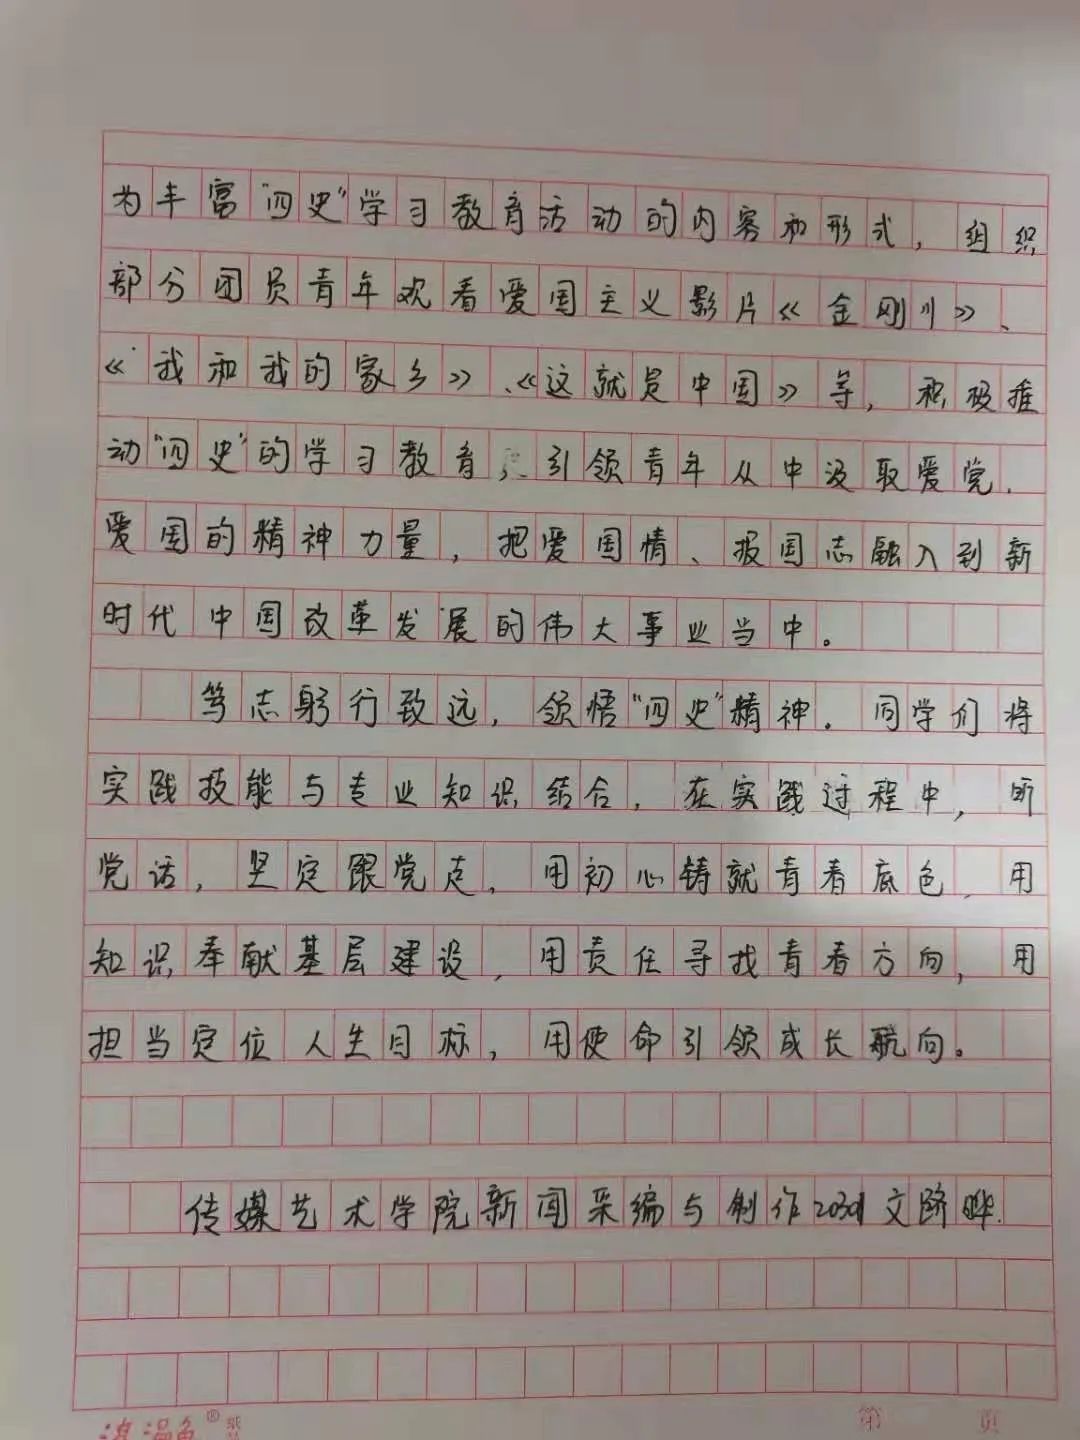 为丰富“四史”学习教育活动的内容和形式，组织
部分团员青年观看爱国主义影片《金刚川》、
《我和我的家乡》、《这就是中国》等，积极推
动“四史”的学习教育，引领青年从中汲取爱党、
爱国的精神力量，把爱国情、报国志融入到新
时代中国改革发展的伟大事业当中。
笃志躬行致远，领悟“四史”精神。同学们将
实践技能与专业知识结合，在实践过程中，听
党话，坚定跟党走，用初心铸就青春底色，用
知识奉献基层建设，用责任寻找青春方向，用
担当定位人生目标，用使命引领成长航向。
传媒艺术学院新闻采编与制作 文
第 页